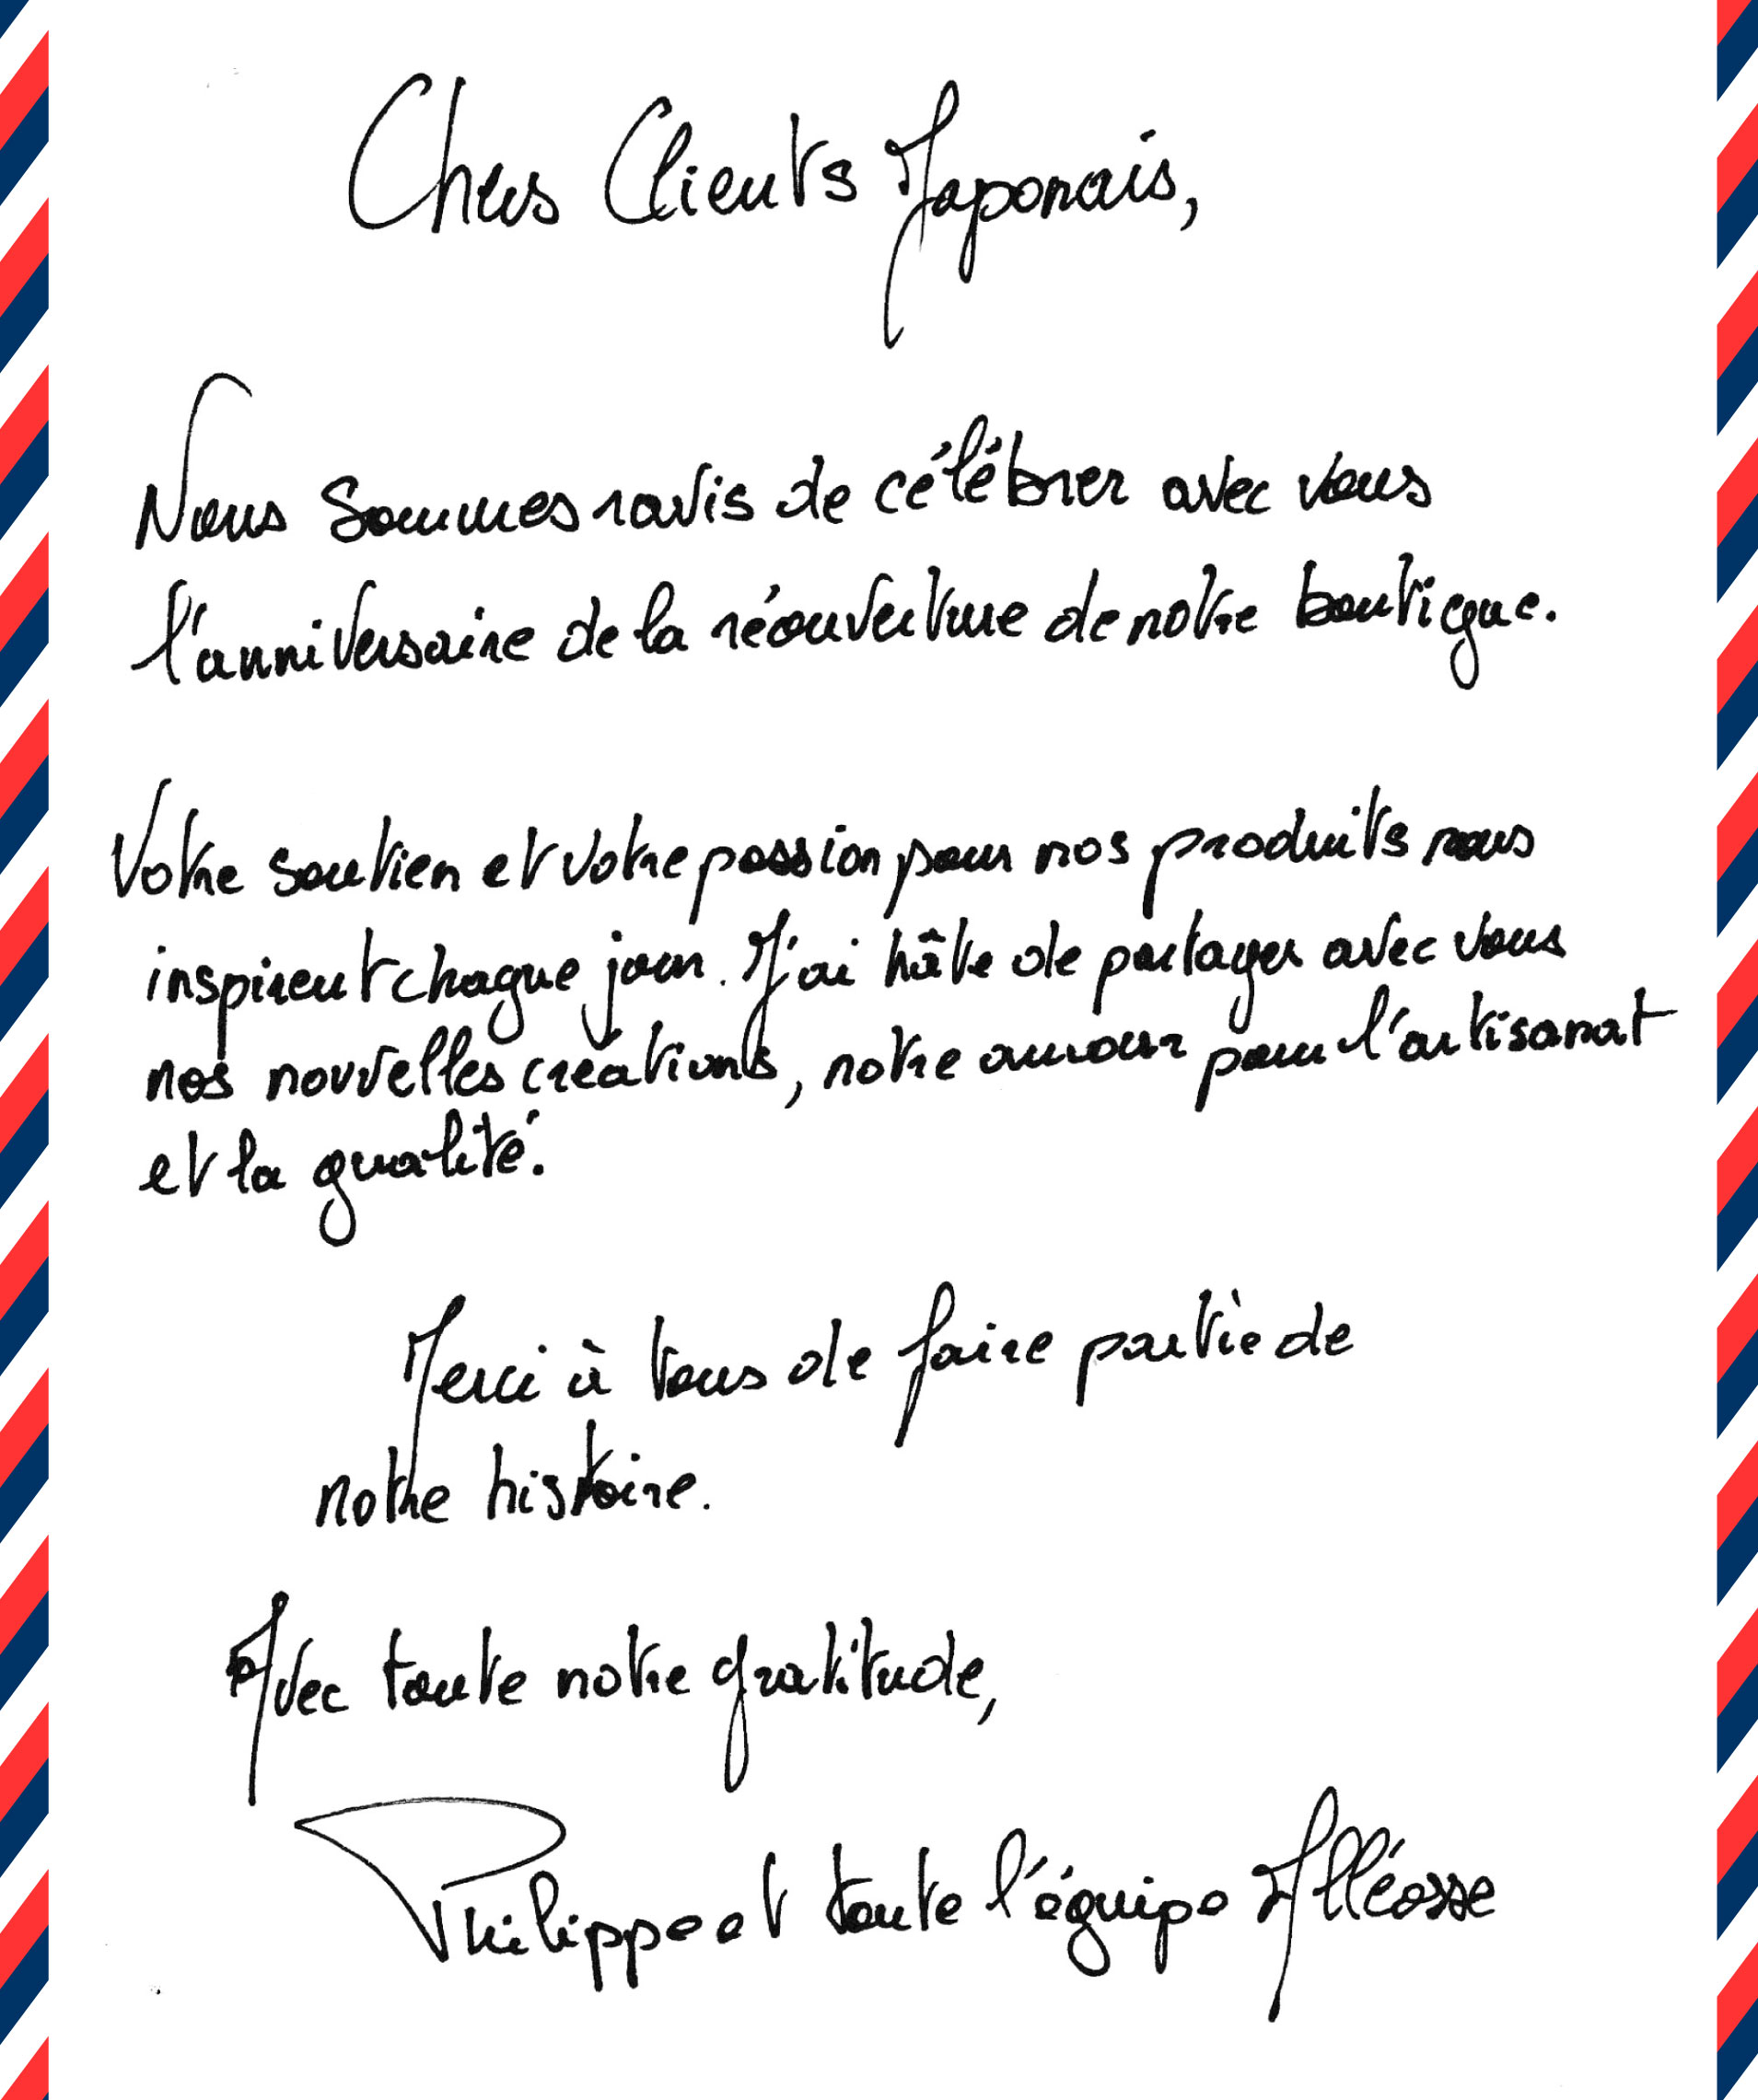 Chers Clients Japonais,
Nous sommes ravis de célébrer avec vous
l'anniversaire de la réouverture de notre boutique.
Votre soutien et votre passion pour nos produits nous
inspirent chaque jour. J'ai hâte de partager avec vous
nos nouvelles créations, notre amour pour l'artisanat
et la qualité.
Merci à tous de faire partie de
notre histoire.
Avec toute notre gratitude,
Philippe et toute l'équipe Alléosse